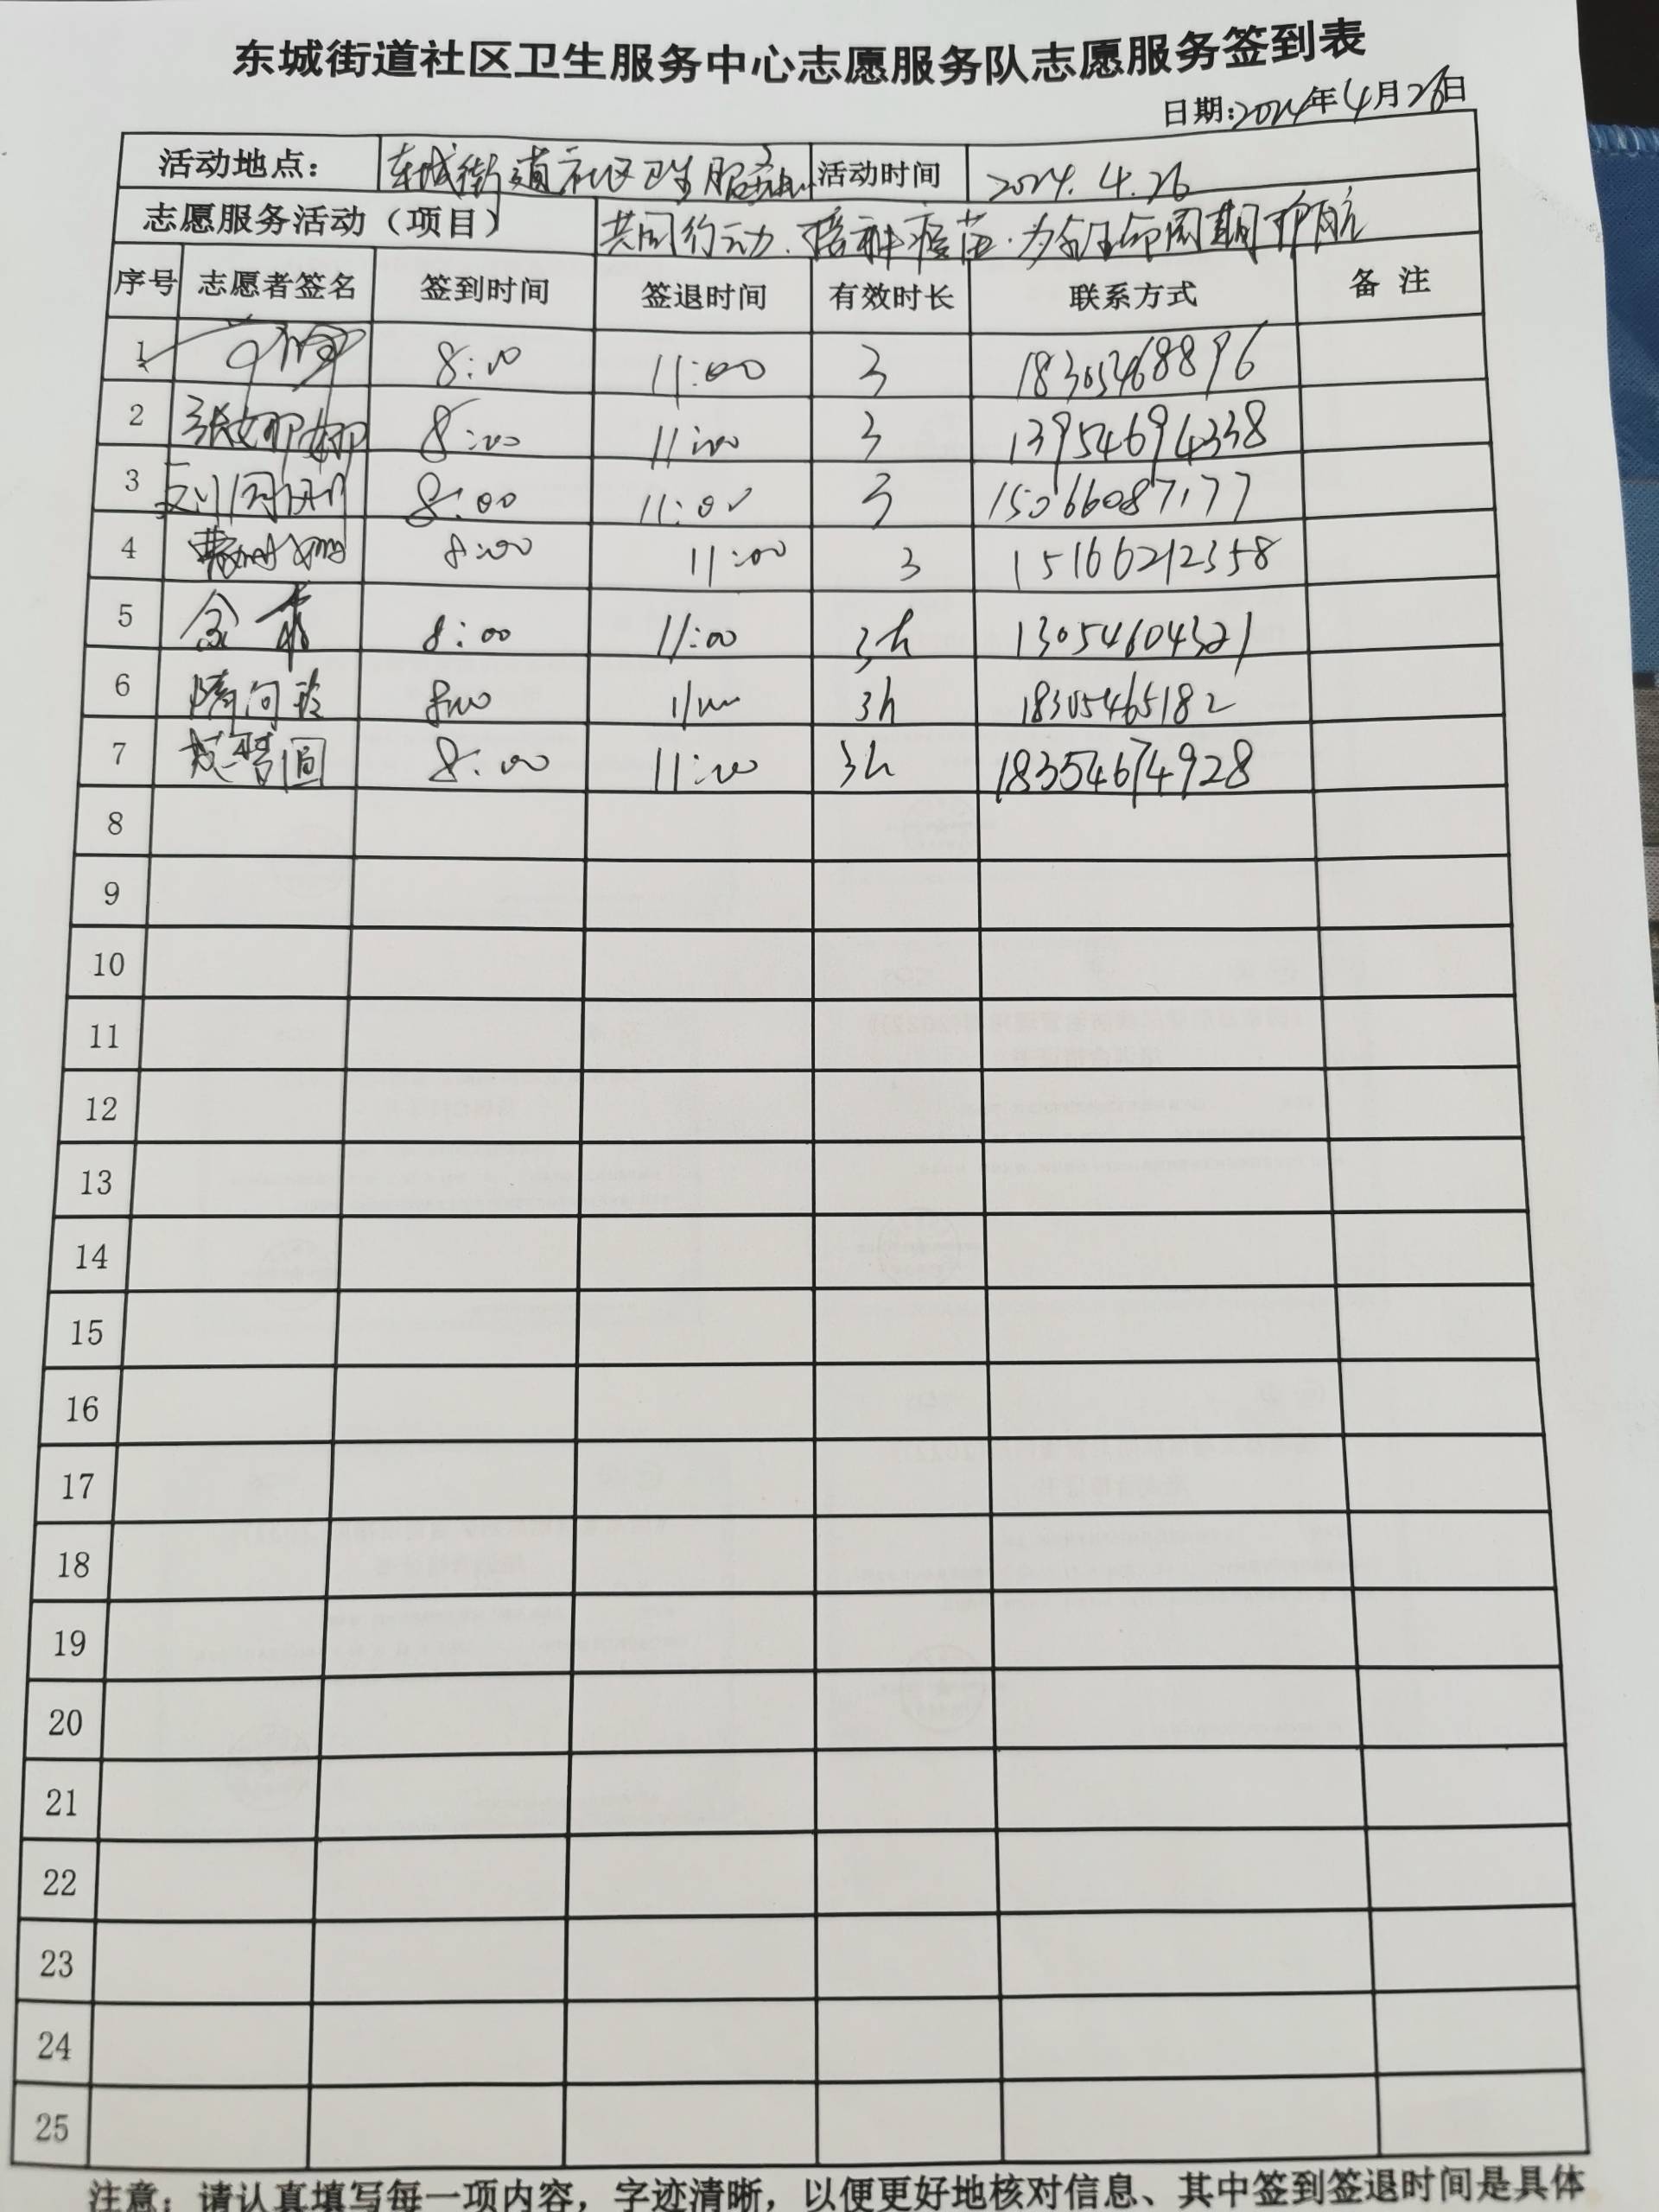 东城街道社区卫生服务中心志愿服务队志愿服务签到表
日期:2024年4月26日
活动地点: 东城街道社区卫生服务中心 活动时间 2024.4.26
志愿服务活动（项目） 共同行动.接种疫苗.为全生命周期护航
序号 志愿者签名 签到时间 签退时间 有效时长 联系方式 备注
1 8:00 11:00 3 18305468896
2 张娜娜 8:00 11:00 3 13954694338
3 8:00 11:00 3 15066087177
4 8:00 11:00 3 15166212358
5 8:00 11:00 3h 13054604321
6 8:00 11:00 3h 18305465182
7 8:00 11:00 3h 18354674928
8
9
10
11
12
13
14
15
16
17
18
19
20
21
22
23
24
25
注意：请认真填写每一项内容，字迹清晰，以便更好地核对信息、其中签到签退时间是具体